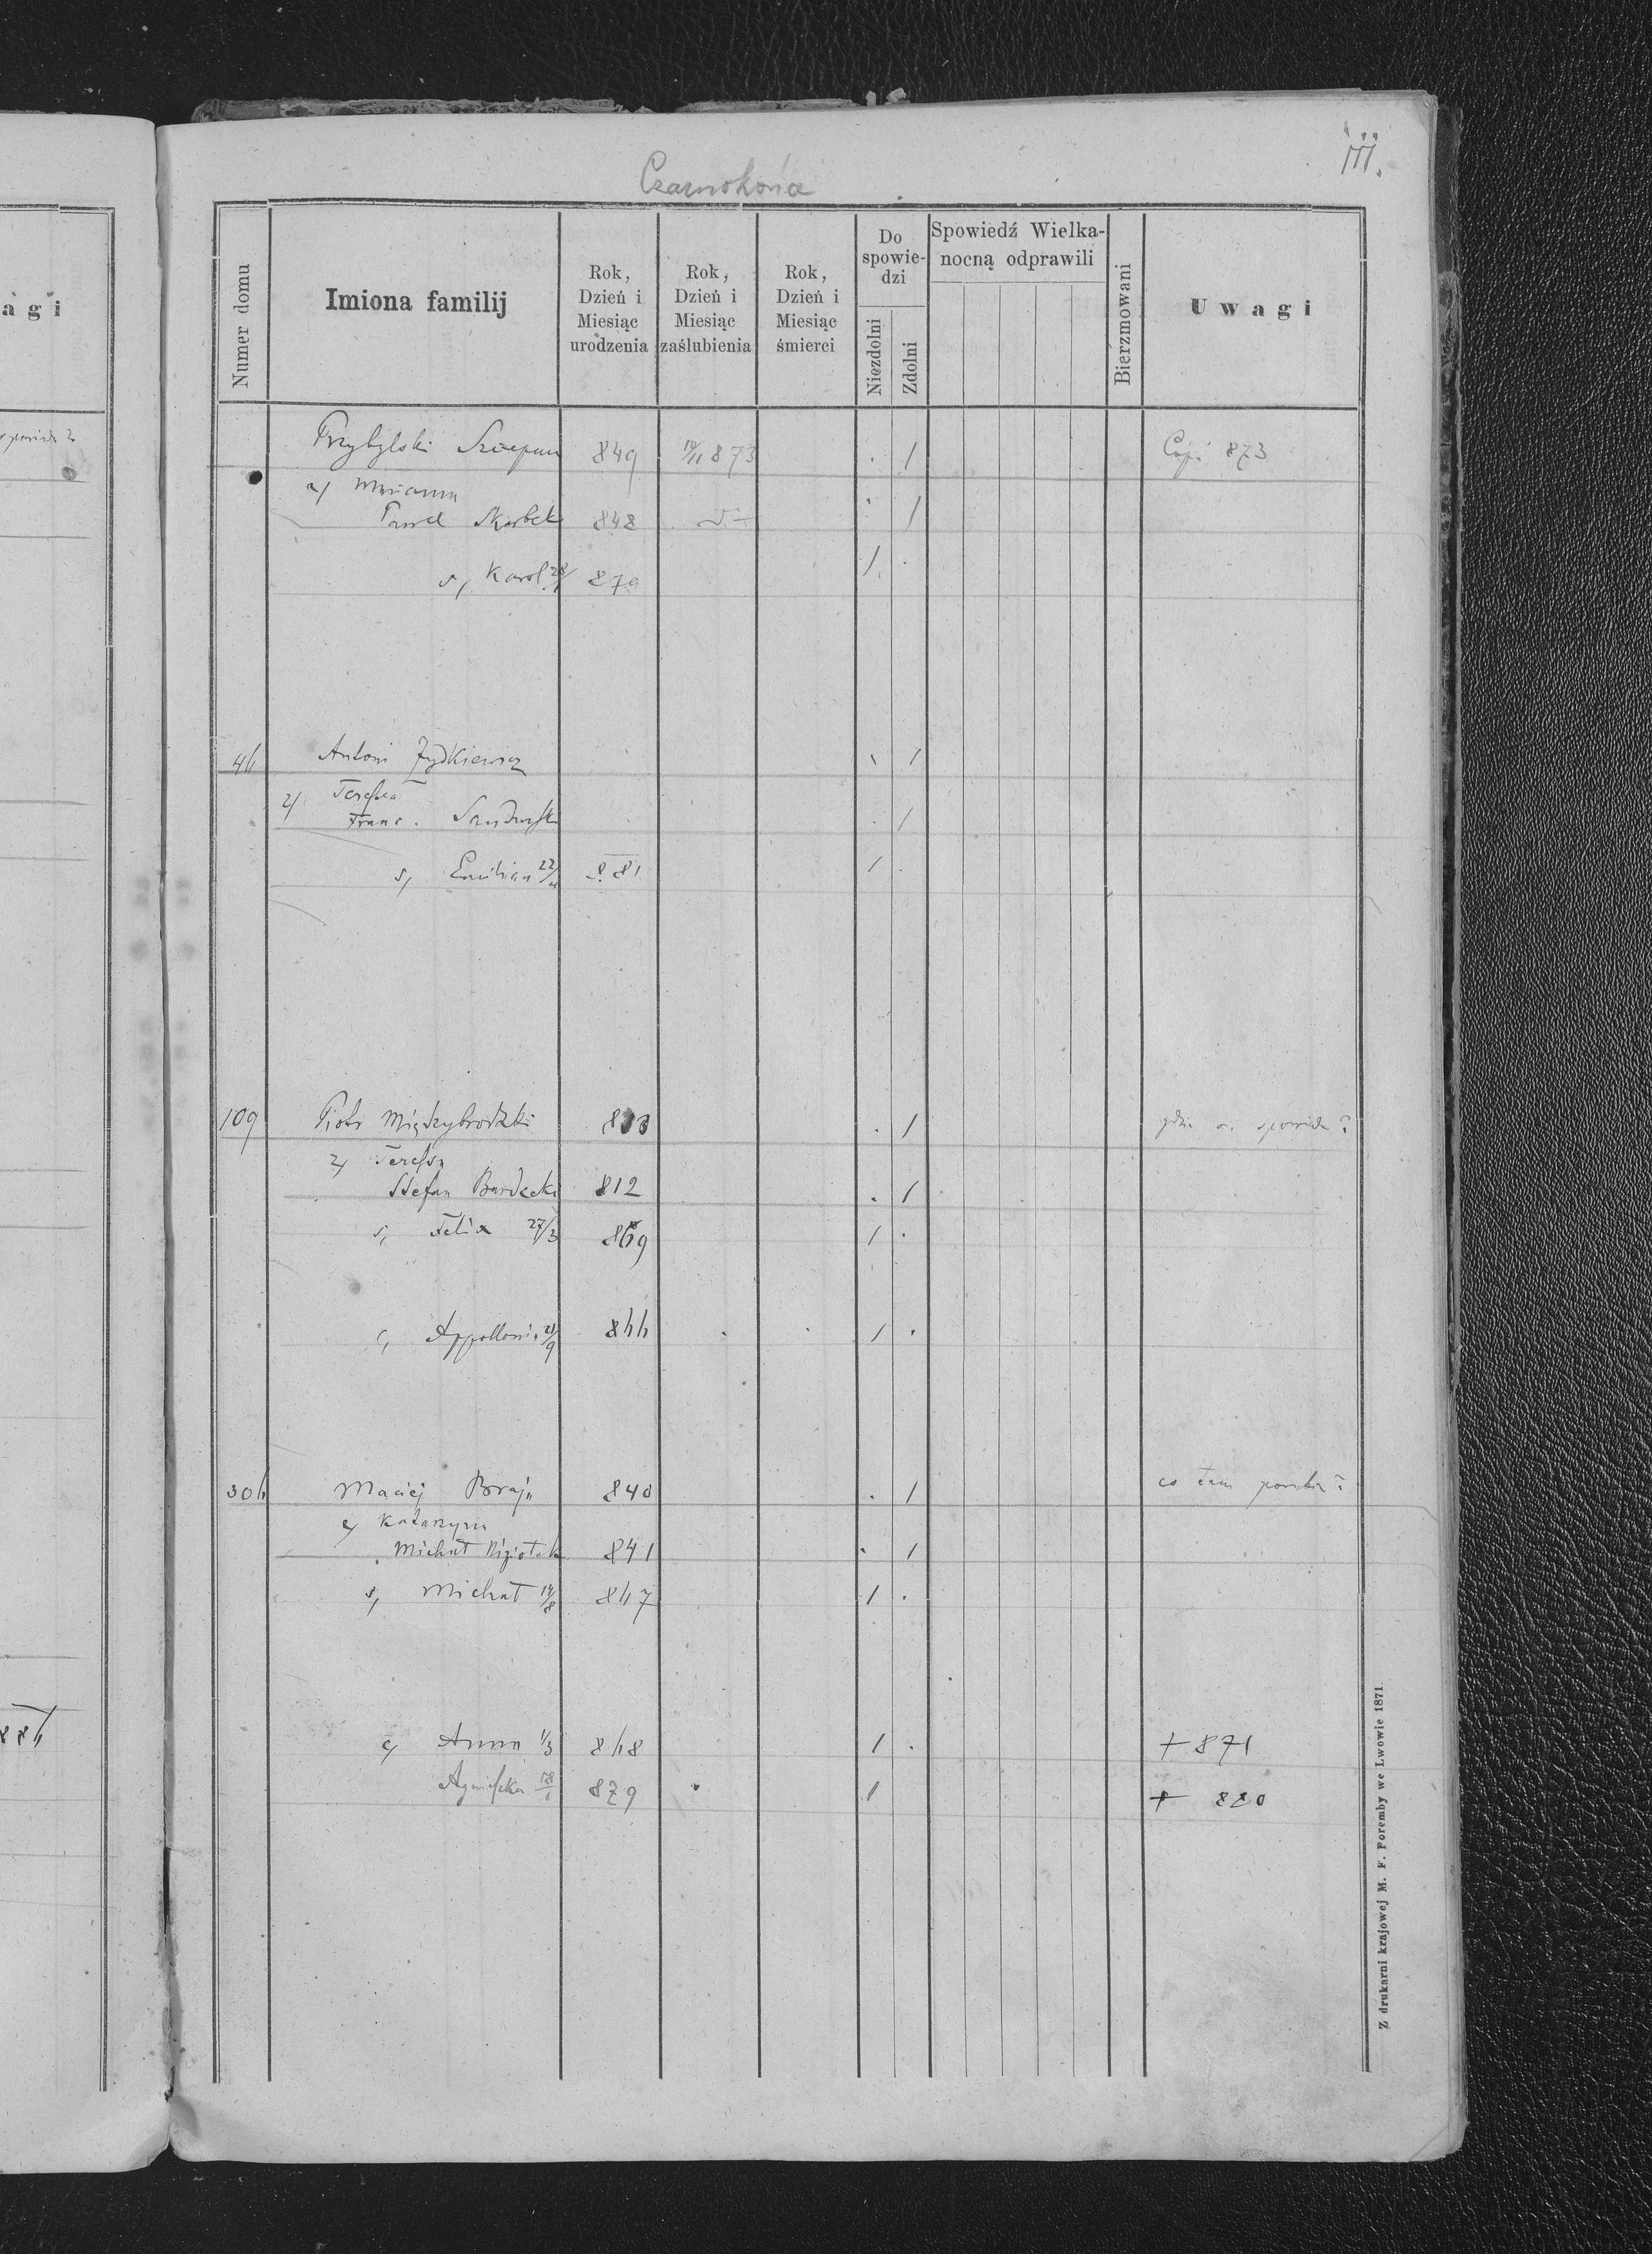 III.
Czarnokońce
Numer domu
Imiona familij
Rok, Dzień i Miesiąc urodzenia
Rok, Dzień i Miesiąc zaślubienia
Rok, Dzień i Miesiąc śmierci
Do spowie-dzi
Niezdolni
Zdolni
Spowiedź Wielka-nocną odprawili
Bierzmowani
Uwagi
agi
Przybylski Szczepan 849 10/11 873 . / Copi 873
Marianna
Paweł Skarbek 848 . /
s, Karol 879 / .
Antoni Żydkiewicz /
2/ Teressa
Franc. /
s, Emilian 22/ 881 / .
109 Piotr Międzybrodzki . /
2/ Teressa
Stefan Bardecki 812 . /
s, Felix 27/3 869 / .
c, Appollonia 866 / .
306 Maciej Braja 840 . / co tam porabia?
Katarzyna
Michał 841 . /
s, Michał 867 / .
c, Anna 1/3 868 / . + 871
Agnieszka 879 / + 880
Z drukarni krajowej M. F. Poremby we Lwowie 1871